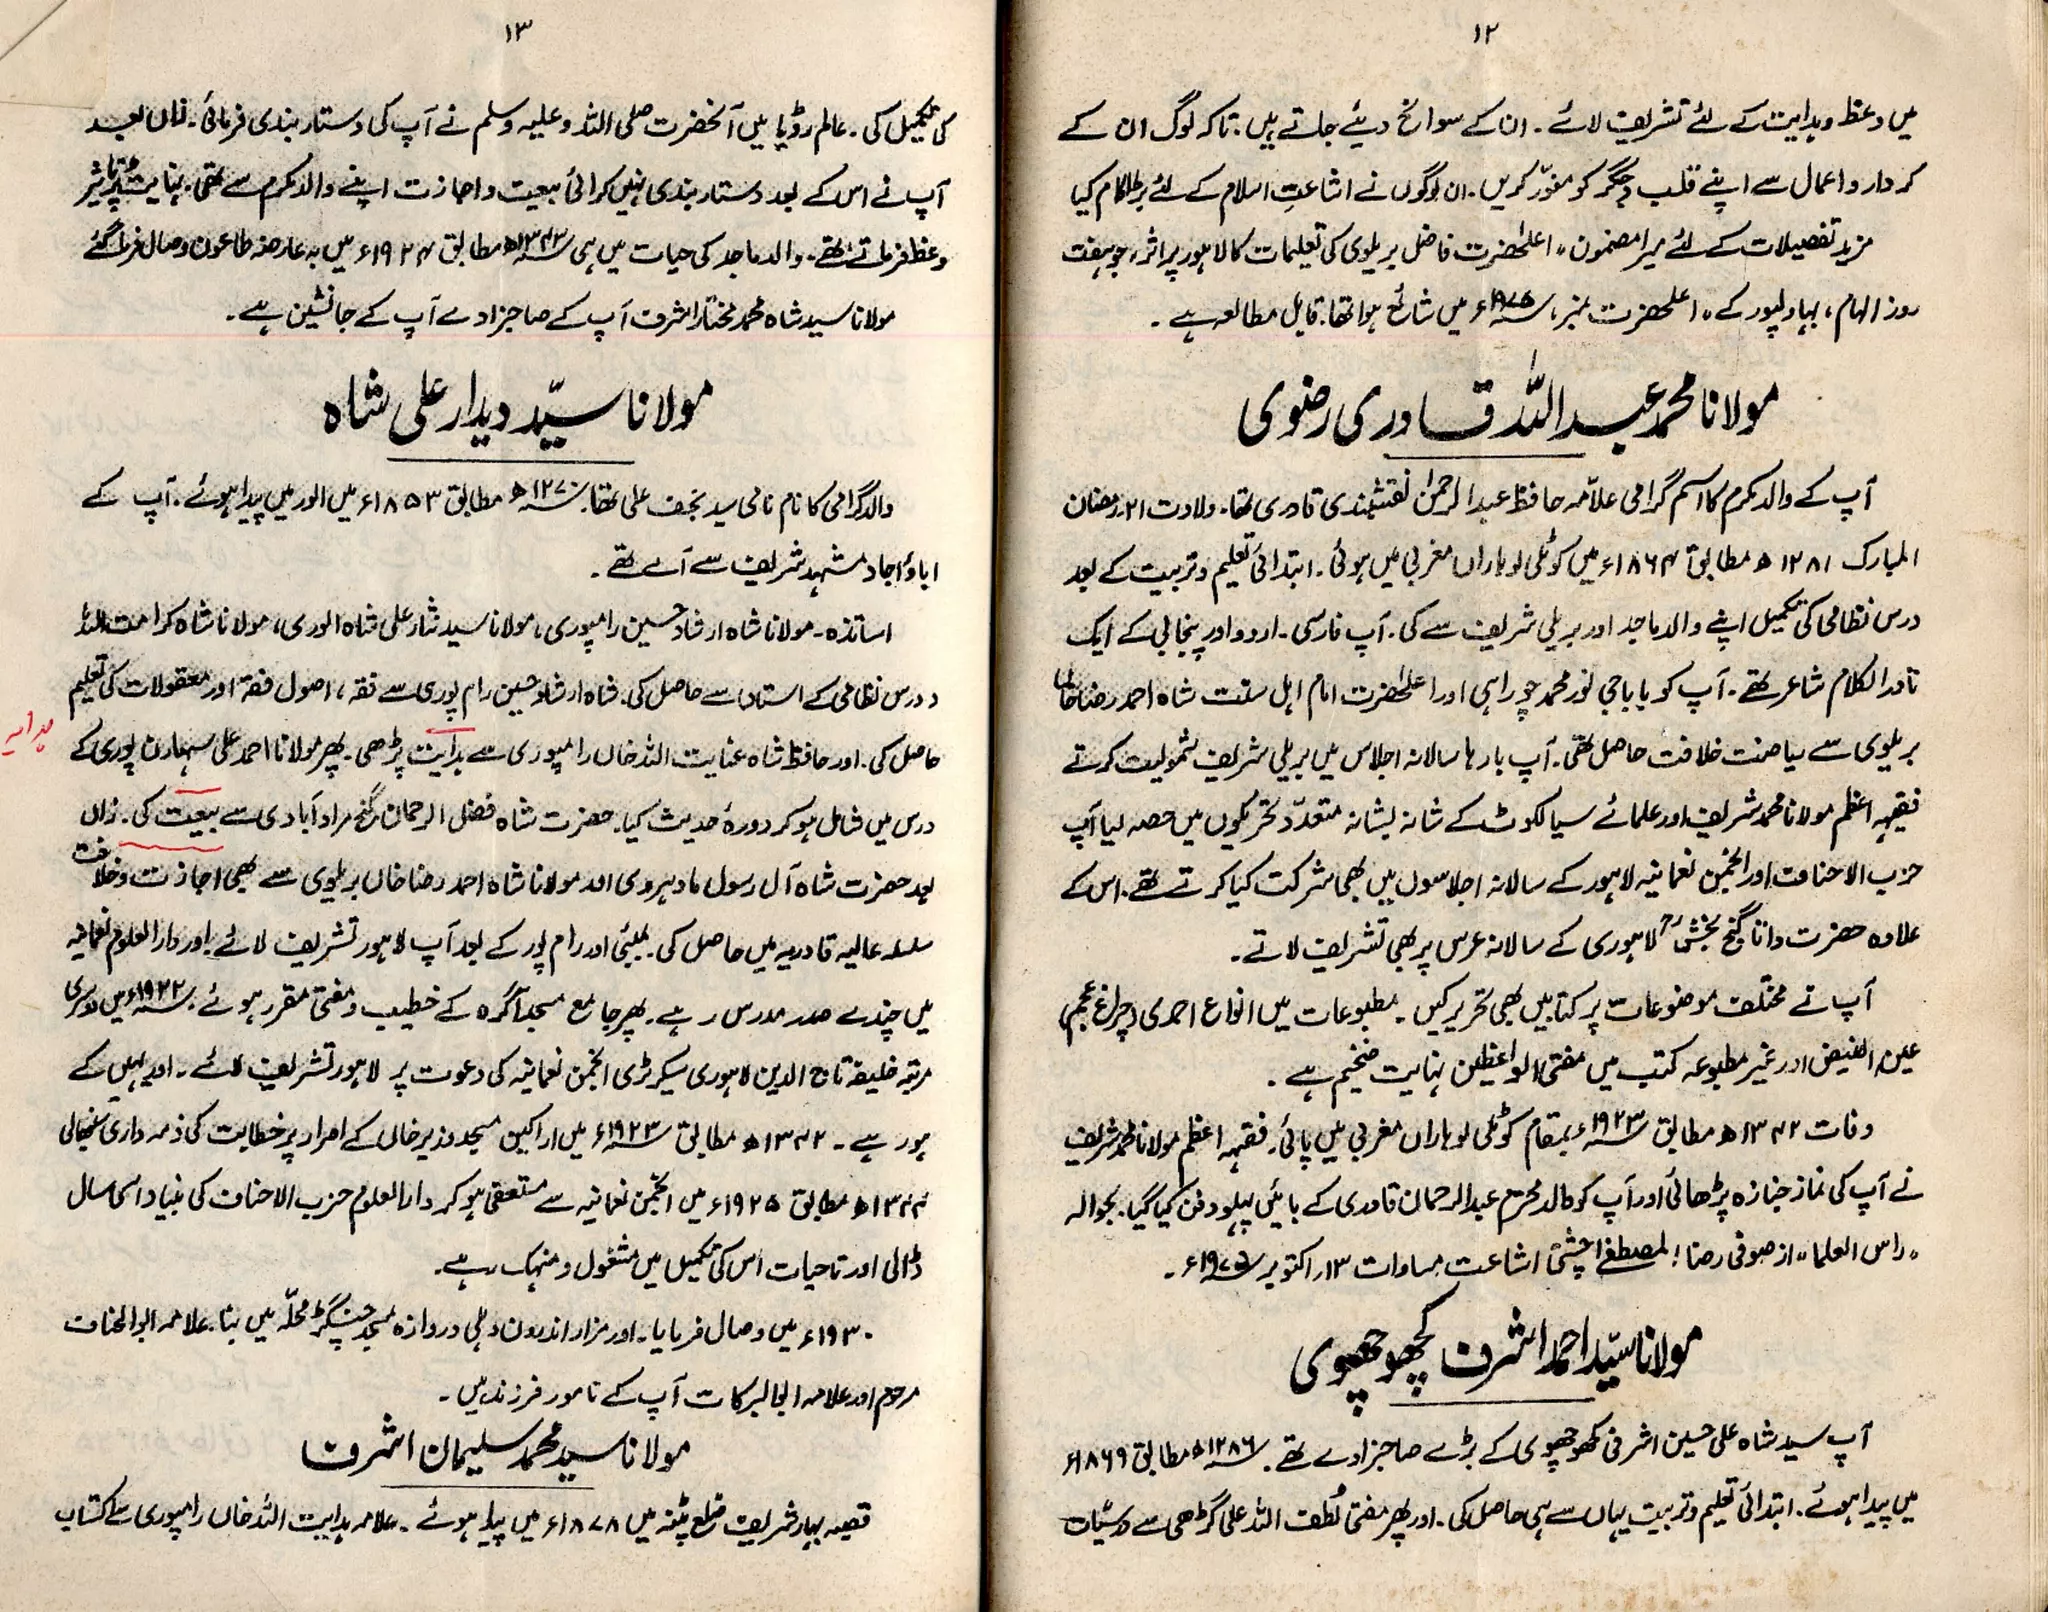 ۱۲
میں وعظ و ہدایت کے لئے تشریف لائے ۔ ان کے سوانح دیئے جاتے ہیں ۔ تاکہ لوگ ان کے
کردار و اعمال سے اپنے قلب و جگر کو منوّر کریں ۔ ان لوگوں نے اشاعتِ اسلام کے لئے بڑا کام کیا
مزید تفصیلات کے لئے میرا مضمون " اعلٰحضرت فاضل بریلوی کی تعلیمات کا لاہور پر اثر " جو ہفت
روزہ الہام ، بہاولپور کے " اعلحضرت نمبر ، ۱۹۷۵ء میں شائع ہوا تھا ۔ قابل مطالعہ ہے ۔
مولانا محمد عبد اللہ قادری رضوی
آپ کے والد مکرم کا اسم گرامی علاّمہ حافظ عبد الرحمٰن نقشبندی قادری تھا ۔ ولادت ۲۱ رمضان
المبارک ۱۲۸۱ھ مطابق ۱۸۶۴ء میں کوٹلی لوہاراں مغربی میں ہوئی ۔ ابتدائی تعلیم و تربیت کے بعد
درس نظامی کی تکمیل اپنے والد ماجد اور بریلی شریف سے کی ۔ آپ فارسی ۔ اردو اور پنجابی کے ایک
قادر الکلام شاعر تھے ۔ آپ کو باباجی نور محمد چوراہی اور اعلٰحضرت امام اہل سنت شاہ احمد رضا خاں
بریلوی سے بیاضت خلافت حاصل تھی ۔ آپ بارہا سالانہ اجلاس میں بریلی شریف شمولیت کرتے
فقیہہ اعظم مولانا محمد شریف اور علمائے سیالکوٹ کے شانہ بشانہ متعدّد تحریکوں میں حصہ لیا آپ
حزب الاحناف اور انجمن نعمانیہ لاہور کے سالانہ اجلاسوں میں بھی شرکت کیا کرتے تھے ۔ اس کے
علاوہ حضرت داتا گنج بخشؒ لاہوری کے سالانہ عرس پر بھی تشریف لاتے ۔
آپ نے مختلف موضوعات پر کتابیں بھی تحریر کیں ۔ مطبوعات میں انواع احمدی ( چراغ عجم )
عین الفیض اور غیر مطبوعہ کتب میں مفتی الواعظین نہایت ضخیم ہے ۔
وفات ۱۳۴۲ھ مطابق ۱۹۲۳ء بمقام کوٹلی لوہاراں مغربی میں پائی ۔ فقیہہ اعظم مولانا محمد شریف
نے آپ کی نماز جنازہ پڑھائی اور آپ کو والد محترم عبد الرحمان قادری کے بائیں پہلو دفن کیا گیا ۔ بحوالہ
" راس العلما " از صوفی رضا المصطفےٰ چشتی اشاعت مساوات ۱۳ ر اکتوبر ۱۹۷۵ء ۔
مولانا سیّد احمد اشرف کچھوچھوی
آپ سید شاہ علی حسین اشرفی کچھوچھوی کے بڑے صاحبزادے تھے ۔ ۱۲۸۶ھ مطابق ۱۸۶۹ء
میں پیدا ہوئے ۔ ابتدائی تعلیم و تربیت یہاں سے ہی حاصل کی ۔ اور پھر مفتی لُطف اللہ علی گڑھی سے درسیّات
۱۳
کی تکمیل کی ۔ عالم رؤیا میں آنحضرت صلی اللہ و علیہ وسلم نے آپ کی دستار بندی فرمائی ۔ زاں بعد
آپ نے اس کے بعد دستار بندی نہیں کرائی بیعت و اجازت اپنے والد مکرم سے تھی ۔ نہایت پُرتاثیر
وعظ فرماتے تھے ۔ والد ماجد کی حیات میں ہی ۱۳۴۳ھ مطابق ۱۹۲۴ء میں بہ عارضہ طاعون وصال فرما گئے
مولانا سید شاہ محمد مختار اشرف آپ کے صاحبزادے آپ کے جانشین ہے ۔
مولانا سیّد دیدار علی شاہ
والد گرامی کا نام نامی سید نجف علی تھا ۔ ۱۲۷۰ھ مطابق ۱۸۵۳ء میں الور میں پیدا ہوئے ۔ آپ کے
اباؤ اجاد مشہد شریف سے آئے تھے ۔
اساتذہ ۔ مولانا شاہ ارشاد حسین رامپوری ، مولانا سید نثار علی شاہ الوری ، مولانا شاہ کرامت اللہ
د درس نظامی کے استاد سے حاصل کی ۔ شاہ ارشاد حسین رام پوری سے فقہ ، اصول فقہ اور معقولات کی تعلیم
حاصل کی ۔ اور حافظ شاہ عنایت اللہ خاں رامپوری سے بدأیت پڑھی ۔ پھر مولانا احمد علی سہارن پوری کے
ہدایہ
درس میں شامل ہو کر دورۂ حدیث کیا ۔ حضرت شاہ فضل الرحمان گنج مراد آبادی سے بیعت کی ۔ زاں
بعد حضرت شاہ آل رسول مارہروی اور مولانا شاہ احمد رضا خاں بریلوی سے بھی اجازت و خلافت
سلسلہ عالیہ قادریہ میں حاصل کی ۔ بمبئی اور رام پور کے بعد آپ لاہور تشریف لائے ۔ اور دار العلوم نعمانیہ
میں چندے صدر مدرس رہے ۔ پھر جامع مسجد آگرہ کے خطیب و مفتی مقرر ہوئے ۔ ۱۹۲۲ء میں دوسری
مرتبہ خلیفہ تاج الدین لاہوری سیکرٹری انجمن نعمانیہ کی دعوت پر لاہور تشریف لائے ۔ اور یہیں کے
ہو رہے ۔ ۱۳۴۲ھ مطابق ۱۹۲۳ء میں اراکین مسجد وزیر خاں کے اصرار پر خطابت کی ذمہ داری سنبھالی
۱۳۴۴ھ مطابق ۱۹۲۵ء میں انجمن نعمانیہ سے مستعفی ہو کر دار العلوم حزب الاحناف کی بنیاد اسی سال
ڈالی اور تاحیات اس کی تکمیل میں مشغول و منہمک رہے ۔
۱۹۳۰ء میں وصال فرمایا ۔ اور مزار اندرون دہلی دروازہ مسجد چنگڑ محلّہ میں بنا ۔ علامہ ابوالحنات
مرحوم اور علامہ ابوالبرکات آپ کے نامور فرزند ہیں ۔
مولانا سید محمد سلیمان اشرف
قصبہ بہار شریف ضلع پٹنہ میں ۱۸۷۸ء میں پیدا ہوئے ۔ علامہ ہدایت اللہ خاں رامپوری سے اکتساب